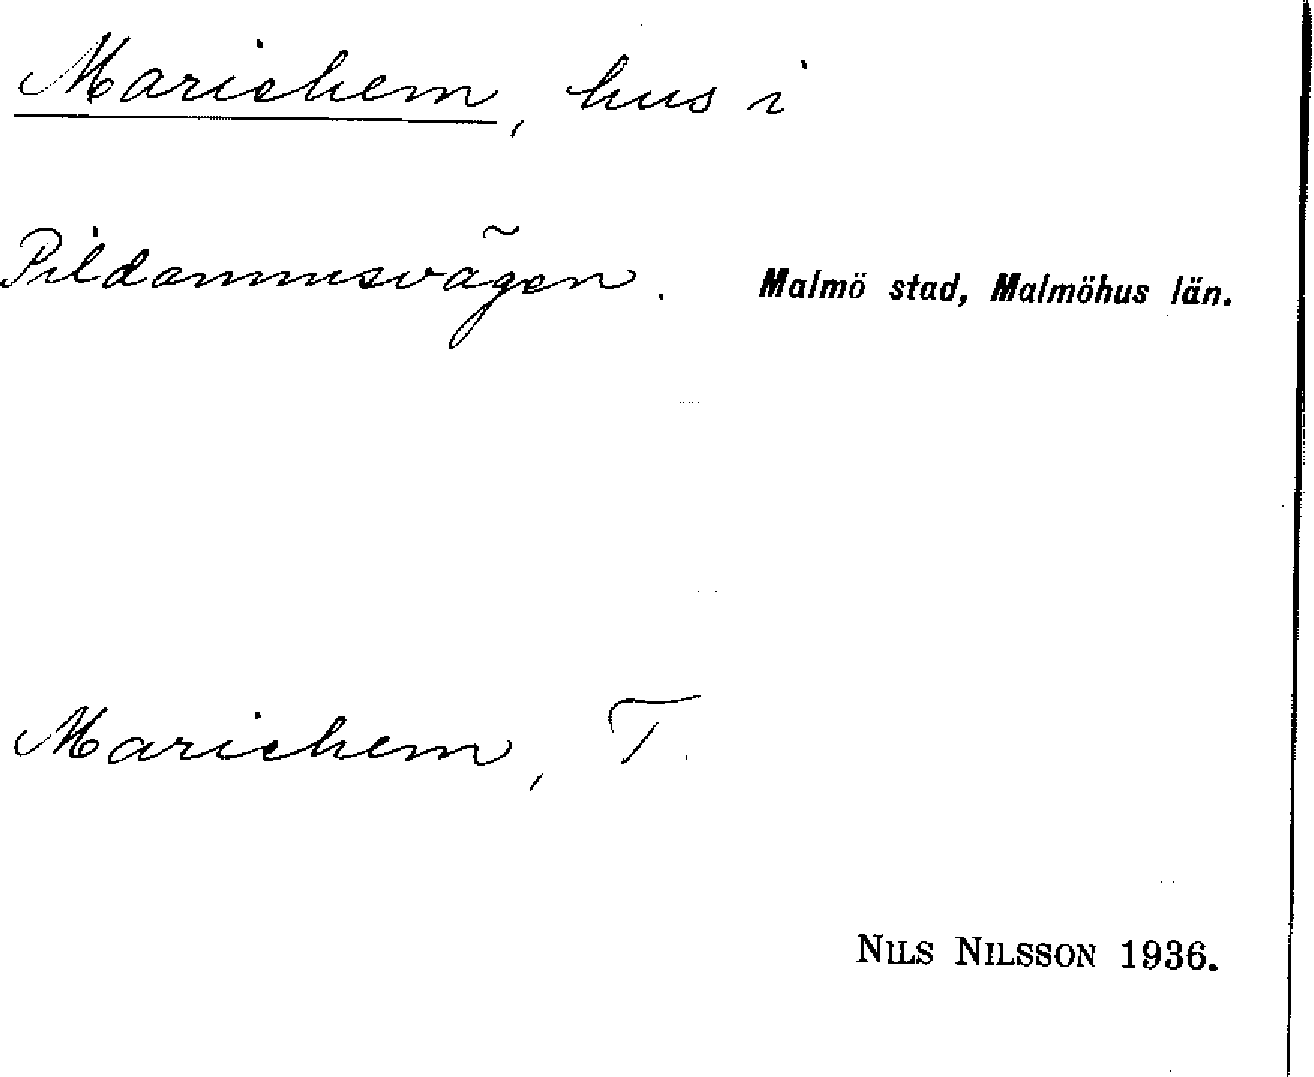 Mariehem, hus i
Pildammsvägen. Malmö stad, Malmöhus län.
Mariehem, T.
NILS NILSSON 1936.